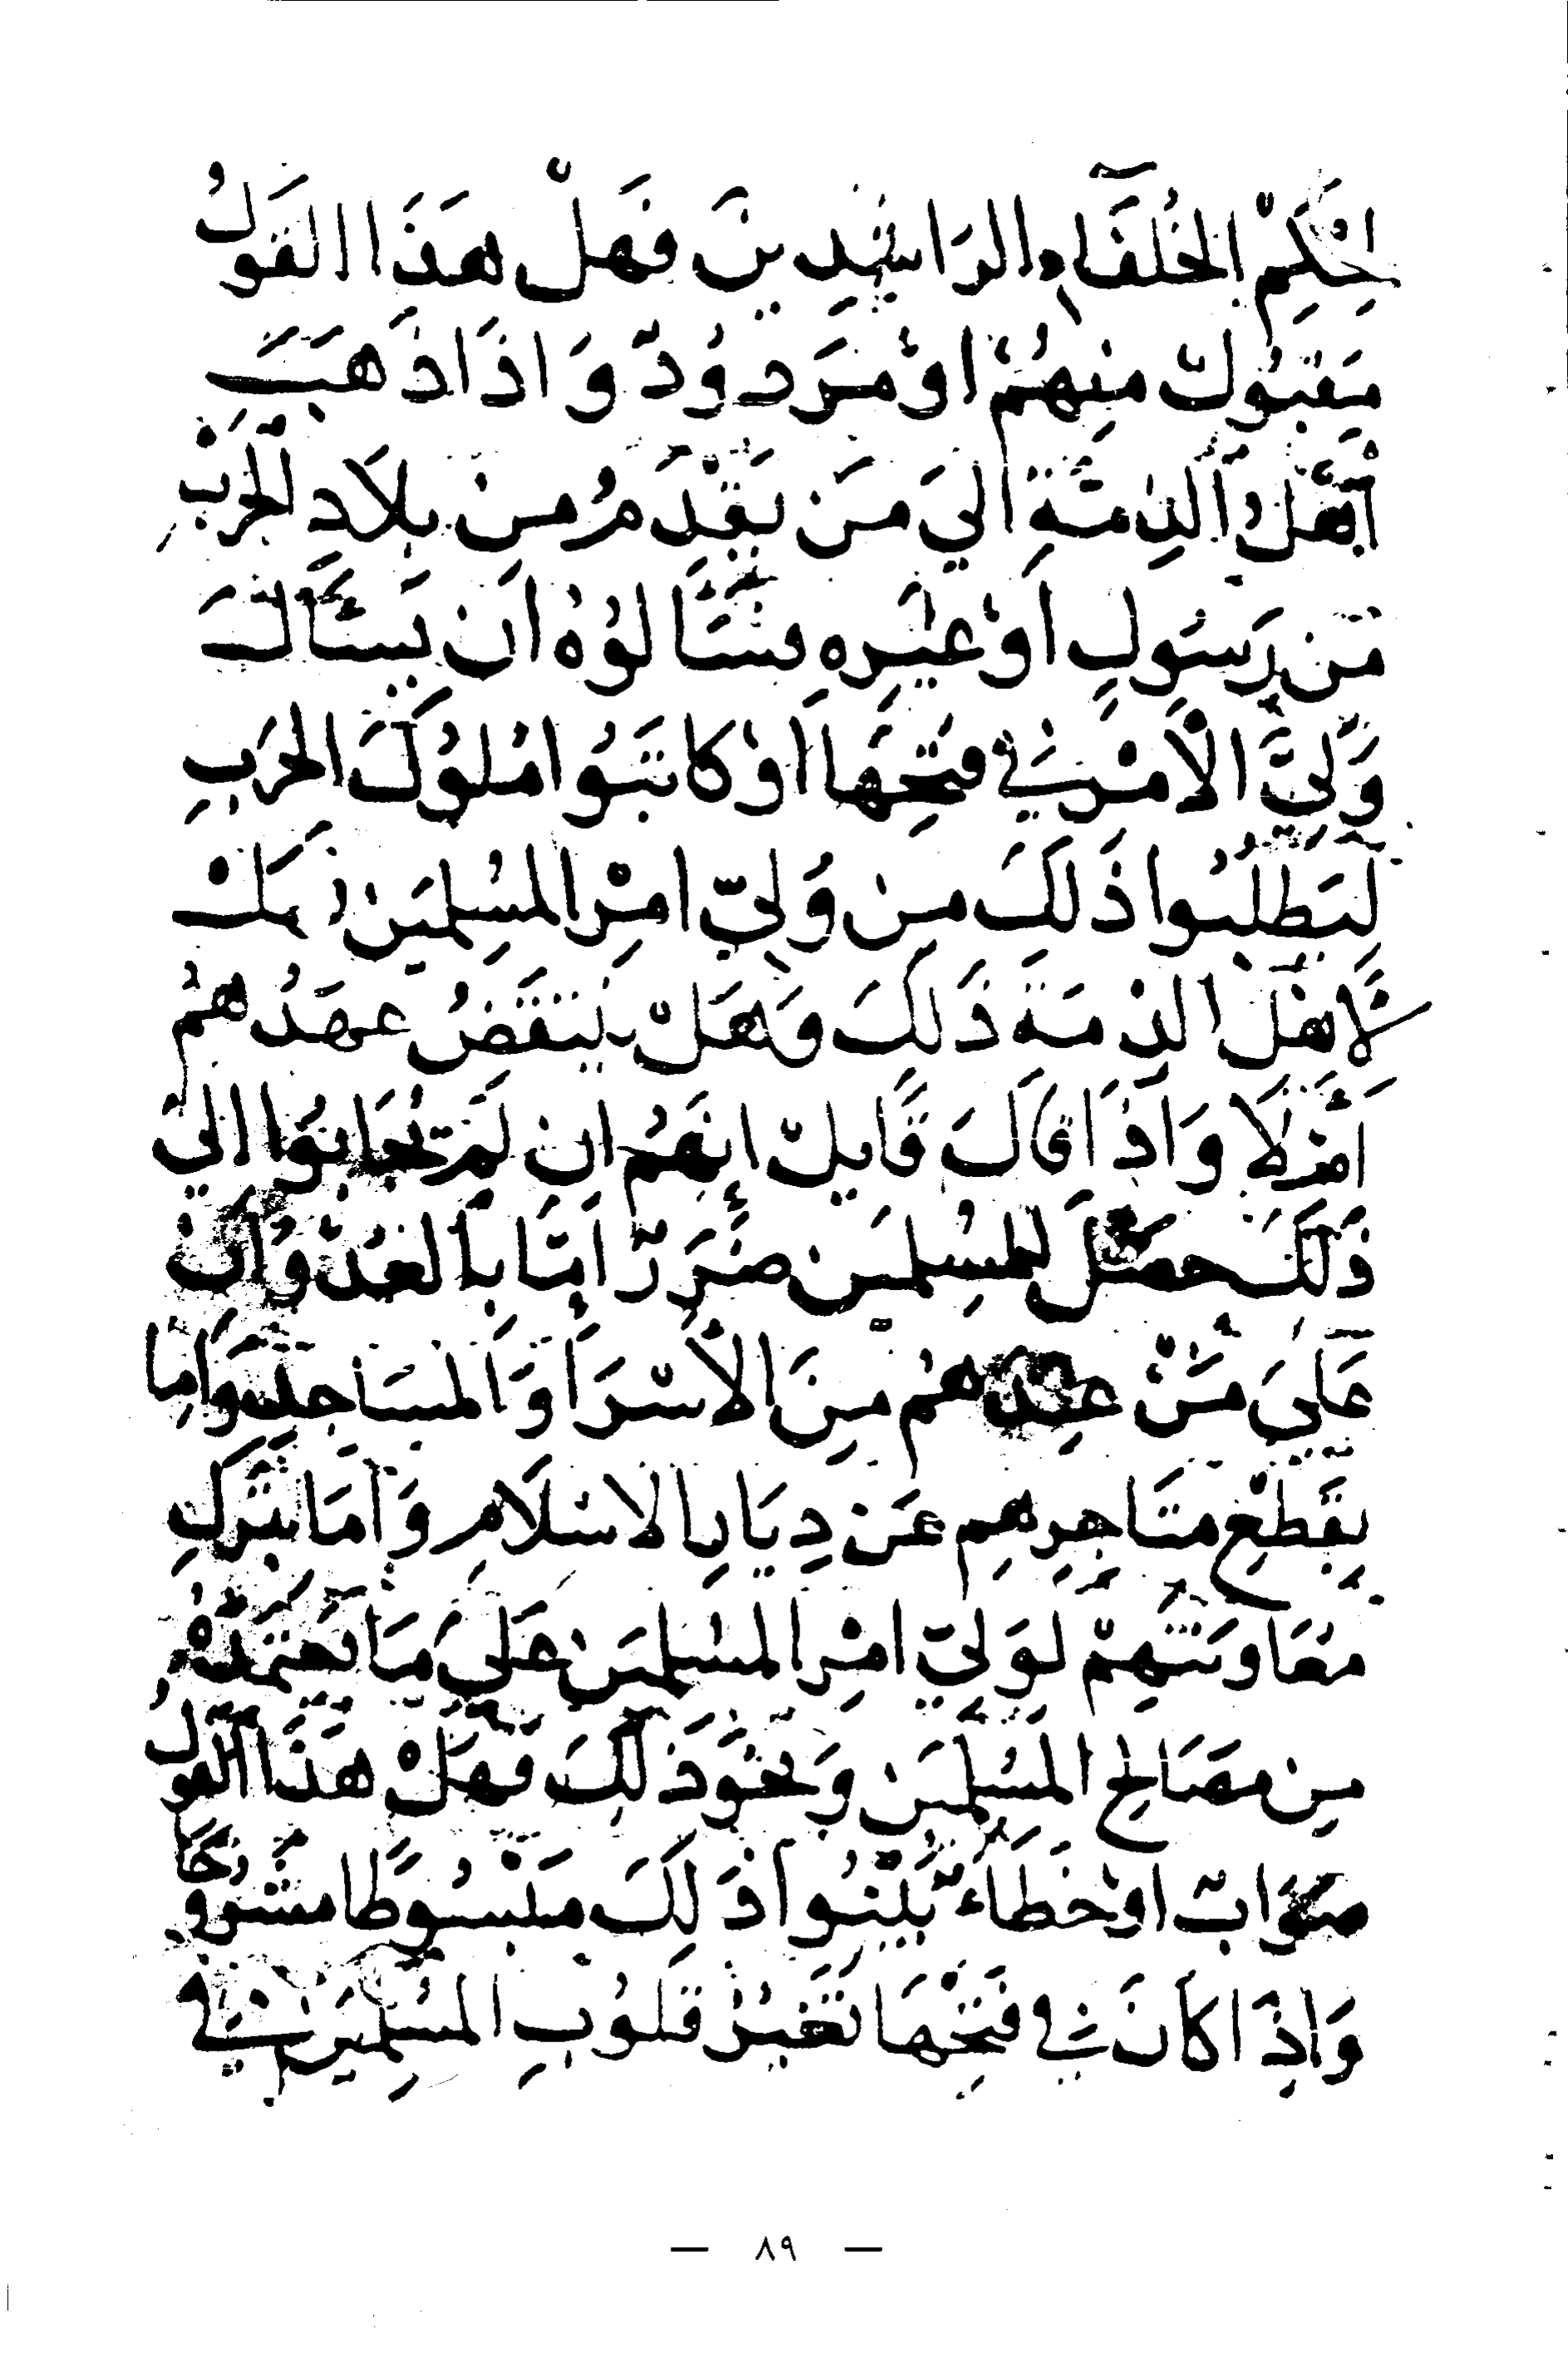 لِحُكْمِ الخُلَفَاءِ الرَاشِدِينَ فَهَلْ هَذَا القَوْلُ
مَقْبُولٌ مِنهُمْ اوْ مَرَدودٌ وَاذَا ذَهَبَ
أهْلُ الذِمَّةِ اليَ مَن يَقْدَمُ مِن بِلاَدِ الحَرْبِ
مَن رَسُولٍ اَوْ غَيْرِهِ يسَتَالوُهُ اَن يَسَتَالَ
وَلِيَّ الاَمْرِ فيَ فَتْحِهَا اَوْ كاتَبوُا مُلوُكَ الحَرَبِ
لِيَطلُبُوا ذَلكَ مِن وَلِيّ امْرِ المسُلِميَن
لاَهْلِ الذِمَةِ ذَلكَ وَهَلْ يَنتَقَضُ عهَدُهُمْ
اَمْ لاَ وَاذَا قاَلَ قَايلٌ اِنهَّمُ ان لَمْ يُجَابوُا اليَ
ذَلكَ حصَلَ للمسُلميَن ضَرَرٌ اِمَّا بِالعُدْوَانِ
عَلَيَ مَنْ عِندِهمُ مِنَ الأسْرَا وَالمَسَاجِدِ وَامِا
بِقَطْعِ مَتَاجِرِهمِ عَن دِيَارِ الاسْلَامِ وَاَمَا بِترَكِ
مُعَاوَنَتهِمْ لوَليّ امْرِ المسْلميَن عَليَ مَا يَعتَمدُهُ
مِن مَصَالحِ المسُلِميَن وَنحَوَ ذَلكَ فَهَلْ هَذَا القَوْلُ
صَوَابٌ اوْ خَطَاءٌ بَيّنُوا ذَلكَ مَبْسُوطًا مشَرُوحًا
وَاِذَا كاَنَ فيِ فَتْحِهَا تَغَيُّرْ قلوُبِ المسُلِميَن فيِ
— ٨٩ —